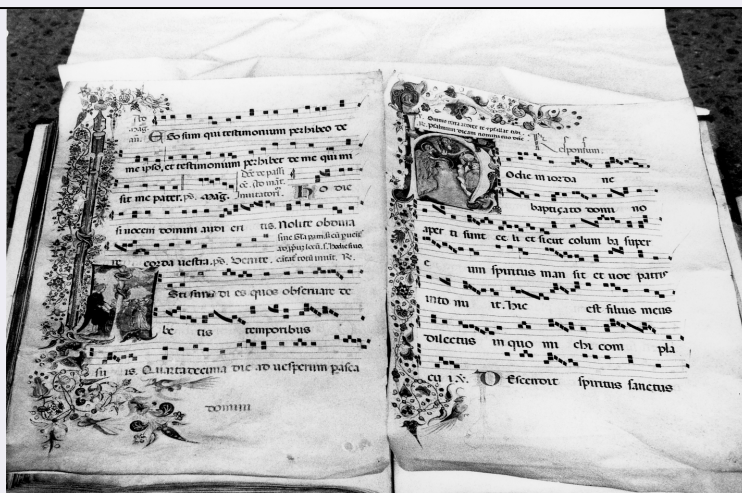 Ego sum qui testimonium perhibeo de
me ipso, et testimonium perhibet de me qui mi
sit me pater. ps. mag. Ho die
si vocem domini audi eri tis. Nolite obdura
re corda vestra. ps. Venite.
Isti sunt di es quos observare de
be tis temporibus
su is. Quartadecima die ad vesperum pasca
domini
Responsum.
Hodie in iorda ne
baptiçato domi no
aper ti sunt ce li et sicut colum ba super
e um spiritus man sit et vox patris
into nu it. hic est filius meus
dilectus in quo mi chi com pla
cu it. V. Descendit spiritus sanctus